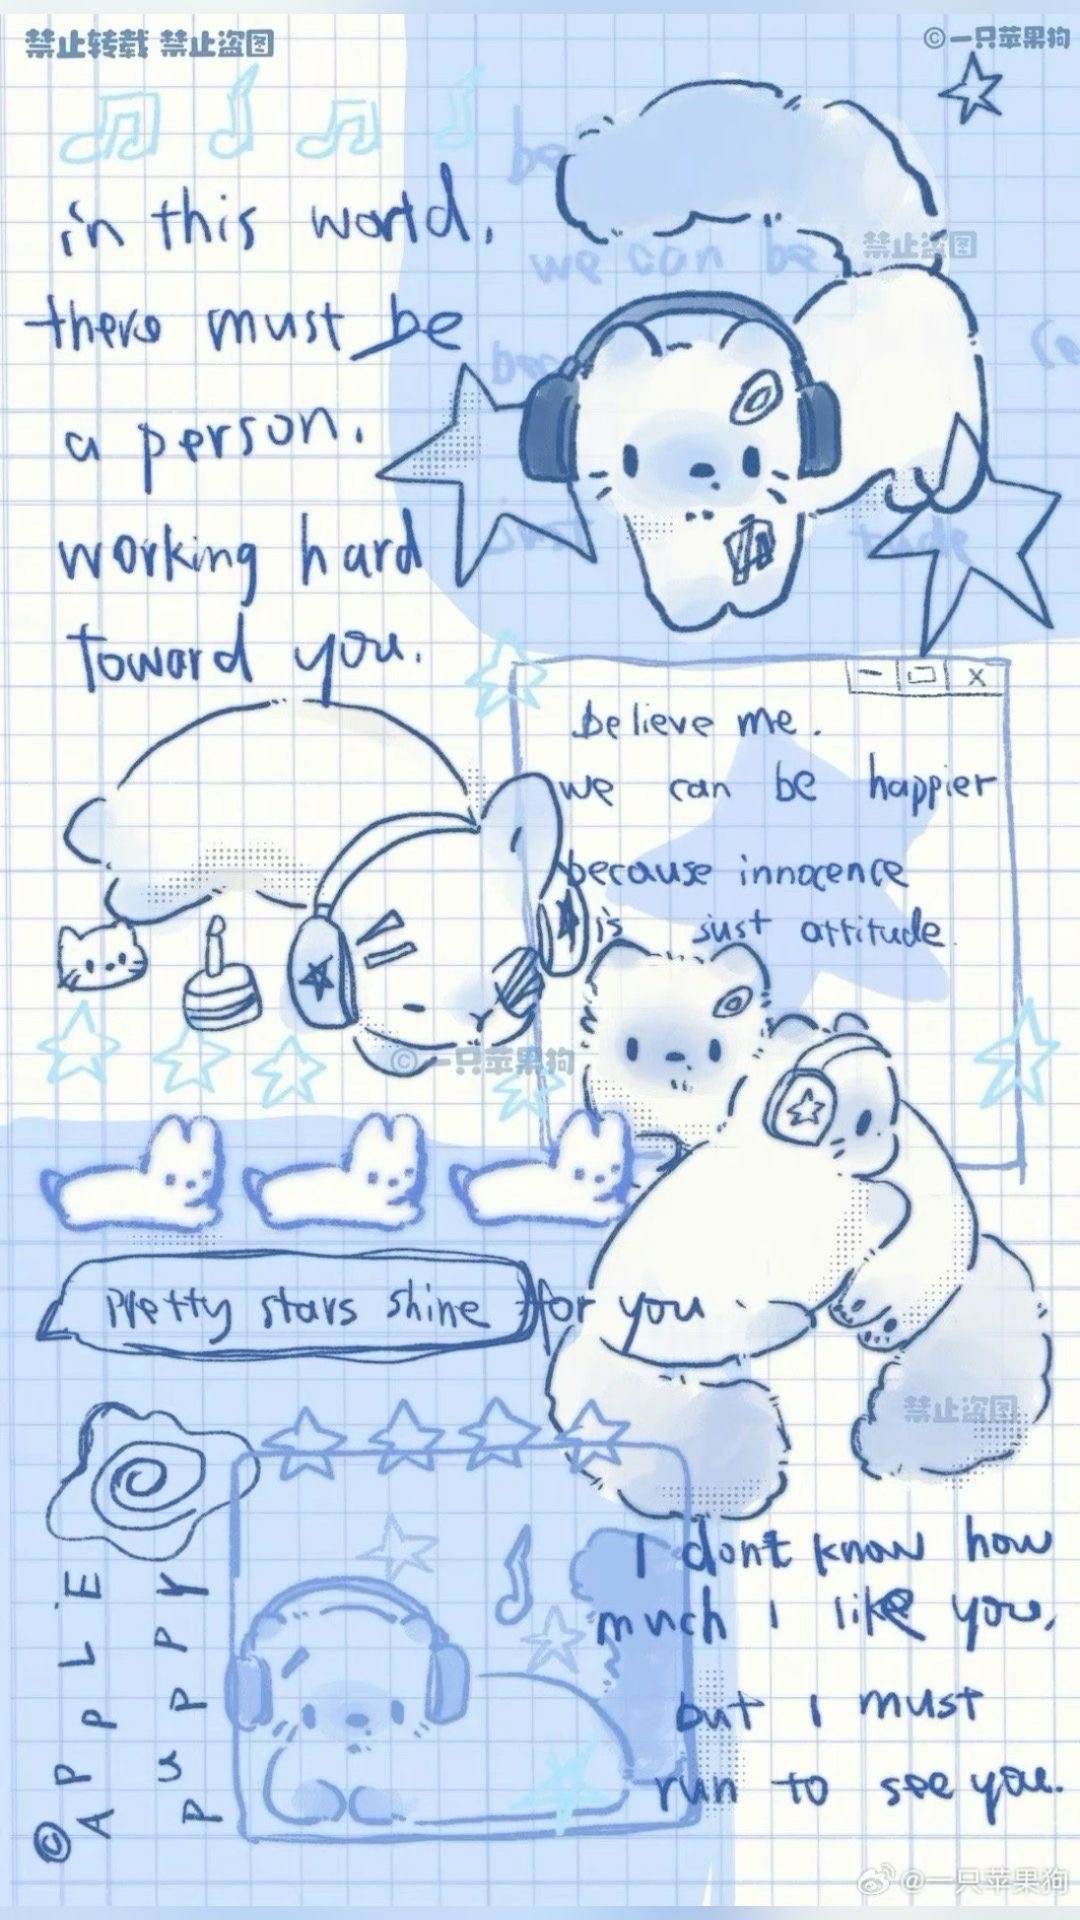 禁止转载 禁止盗图
©一只苹果狗
in this world,
there must be
a person.
working hard
toward you.
we can be
禁止盗图
believe me.
we can be happier
because innocence
is just attitude
©一只苹果狗
Pretty stars shine for you
禁止盗图
I dont know how
much I like you,
but I must
run to see you.
©APPLE
PUPPY
@一只苹果狗